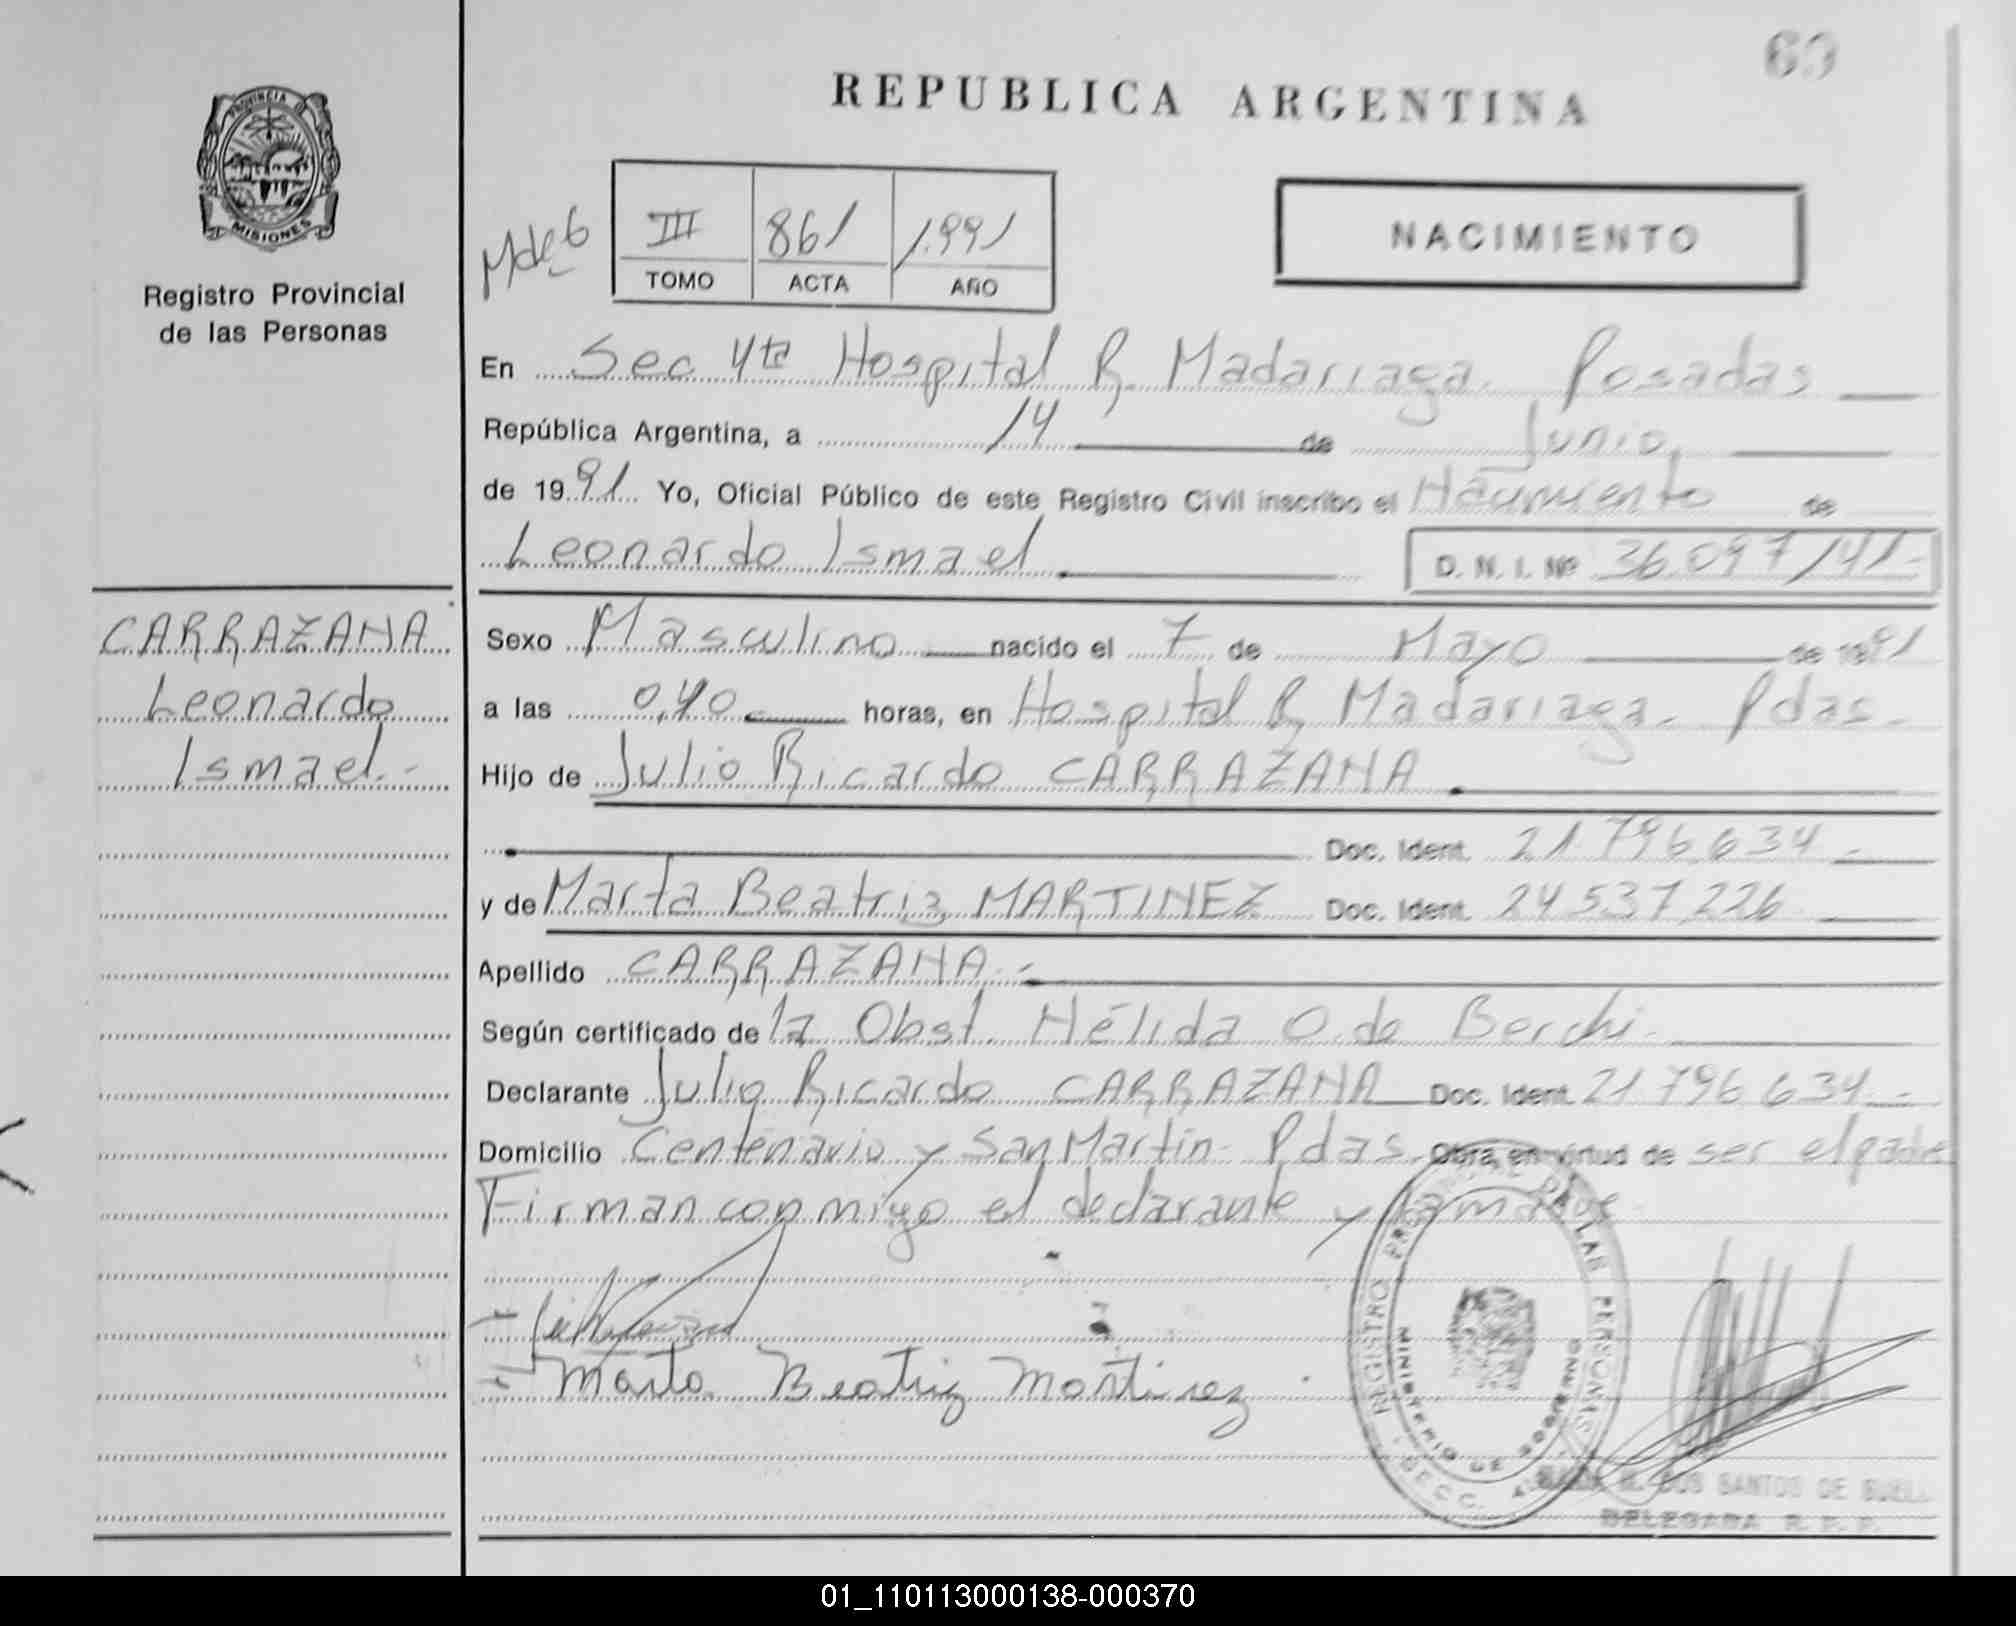 60
REPUBLICA ARGENTINA
PROVINCIA DE
MISIONES
Registro Provincial
de las Personas
III 861 1.991
TOMO ACTA AÑO
NACIMIENTO
En Sec 4ta Hospital R. Madariaga. Posadas
República Argentina, a 14 de Junio
de 1991 Yo, Oficial Público de este Registro Civil inscribo el Nacimiento de
Leonardo Ismael D. N. I. Nº 36.097/141-
CARRAZANA
Leonardo
Ismael.-
Sexo Masculino nacido el 7 de Mayo de 1991
a las 0,40 horas, en Hospital R. Madariaga- Pdas-
Hijo de Julio Ricardo CARRAZANA
Doc. Ident. 21 796 634-
y de Marta Beatriz MARTINEZ Doc. Ident. 24 537 226
Apellido CARRAZANA.-
Según certificado de la Obst. Hélida O. de Berchi-
Declarante Julio Ricardo CARRAZANA Doc. Ident. 21 796 634-
Domicilio Centenario y San Martín- Pdas. Obra en virtud de ser el padre
Firman conmigo el declarante y la madre
Marta Beatriz Martinez
REGISTRO PROVINCIAL DE LAS PERSONAS
MINISTERIO DE GOBIERNO
DOS SANTOS DE
DELEGADA R. P. P.
01_110113000138-000370